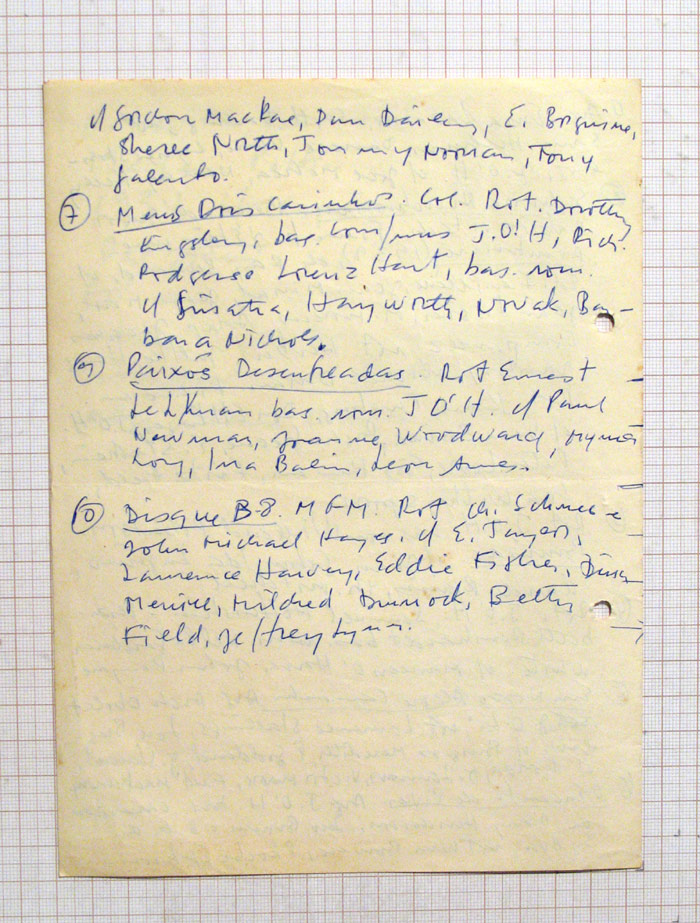 c/ Gordon MacRae, Dan Dailey, E. Borgnine,
Sheree North, Tommy Noonan, Tony
Galento.
7 Meus Dois Carinhos. Col. Rot. Dorothy
Kingsley, bas. com/mus J.O'H, Rich.
Rodgers e Lorenz Hart, bas. rom.
c/ Sinatra, Hayworth, Novak, Bar-
bara Nichols.
9 Paixões Desenfreadas. Rot Ernest
Lehman bas. rom. J O'H. c/ Paul
Newman, Joanne Woodward, Myrna
Loy, Ina Balin, Leon Ames.
10 Disque B-8. MGM Rot Ch. Schnee e
John Michael Hayes. c/ E. Taylor,
Laurence Harvey, Eddie Fisher, Dina
Merrill, Mildred Dunnock, Betty
Field, Jeffrey Lynn.